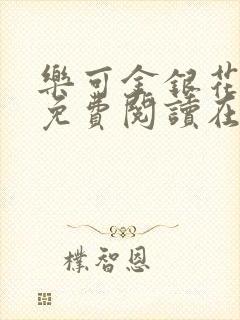 樂可金銀花
免費閱讀在
樸智恩